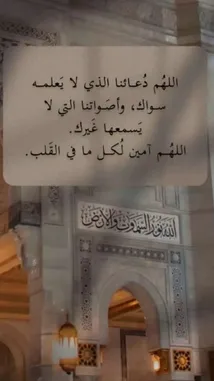 اللهُم دُعـائنا الذي لا يَعلمـه
سـواك، وأصَـواتِنا التي لا
يَسمعها غَيرك.
اللهُـم آمين لُكـل ما في القَلب.
الله نور السموت والأرض